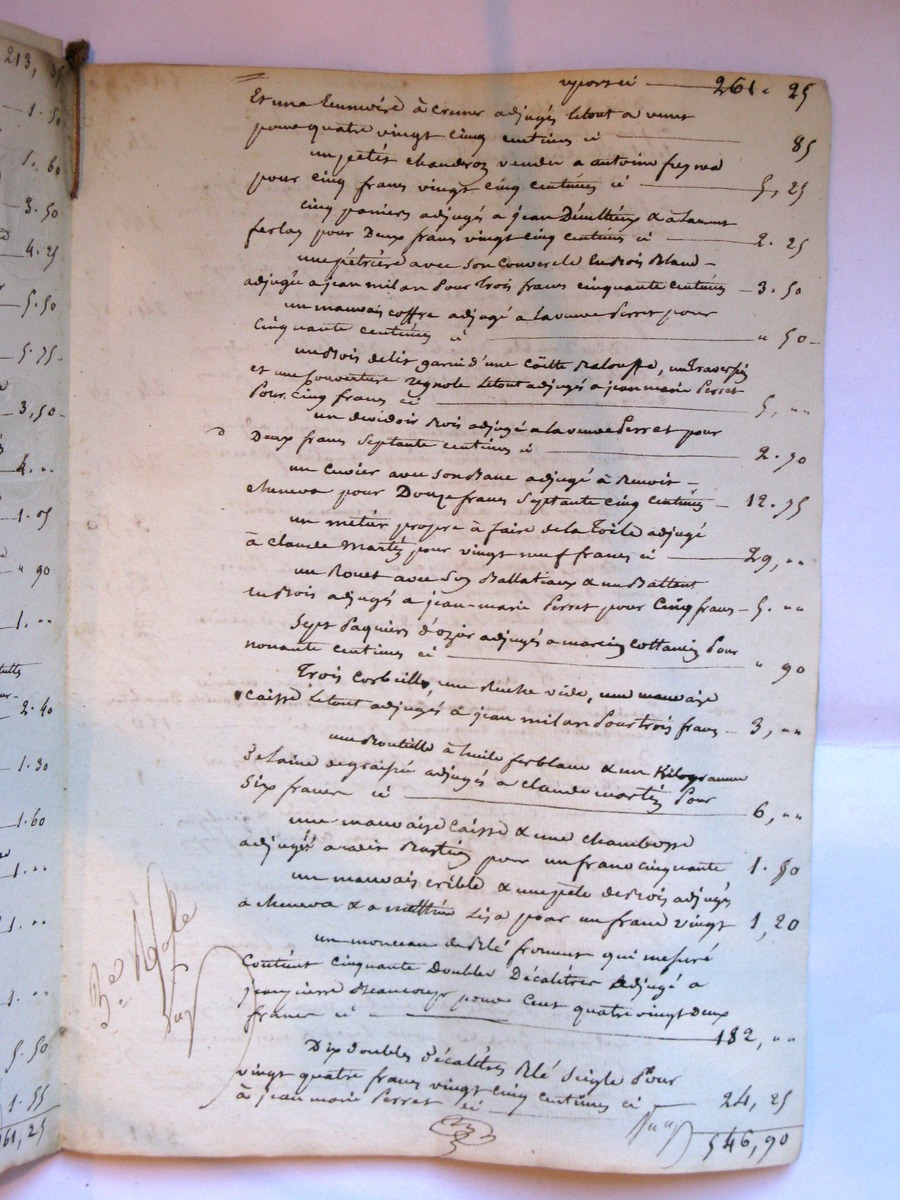 213, 35
1. 50
1. 60
3. 50
4. 25
5. 50
5. 75
3, 50
4. "
1. 05
" 90
1. "
2. 40
1. 30
1. 60
1. "
1. "
1. "
5. 50
1. 55
261, 25
261. 25
Et une à adjugés le tout a
pour quatre vingt cinq centimes ci 85
un petit chaudron vendu a antoine
pour cinq francs vingt cinq centimes ci 5, 25
cinq paniers adjugés a jean & a laurent
ferlay pour Deux francs vingt cinq centimes ci 2. 25
une pétrière avec son couvercle en Bois Blanc
adjugée a jean milan pour trois francs cinquante centimes 3. 50
un mauvais coffre adjugé a la veuve Perret pour
cinquante centimes ci " 50
un Bois de lit garni d'une coëtte Baloufse, un traversin
et une couverture le tout adjugés a jean marie Perret
Pour cinq francs ci 5, "
un dévidoir Bois adjugé a la veuve Perret pour
Deux francs septante centimes ci 2. 70
un Cuvier avec son Banc adjugé à Benoit
pour Douze francs septante cinq centimes 12. 75
un métier propre à faire de la Toile adjugé
à claude pour vingt neuf francs ci 29, "
un Rouet avec & un Battent
en Bois adjugés a jean-marie Perret pour Cinq francs 5. "
Sept Paniers d'ozier adjugés a marcin Pour
nonante centimes ci " 90
Trois corbeilles, une Ruche vide, une mauvaise
caisse le tout adjugés à jean milan Pour trois francs 3, "
une Bouteille à huile ferblanc & un Kilogramme
De laine adjugés a claude Pour
Six francs ci 6, "
une mauvaise caisse & une
adjugés pour un franc cinquante 1. 50
un mauvais crible & une pèle de Bois adjugés
à & a mathieu pour un franc vingt 1, 20
un monceau de Blé froment qui mesuré
contient cinquante Doubles Décalitres adjugé a
jean pierre Beaucoup pour Cent quatre vingt deux
francs ci 182, "
Dix doubles Décalitres Blé Seigle Pour
vingt quatre francs vingt cinq centimes ci 24, 25
à jean marie Perret ci
546, 90